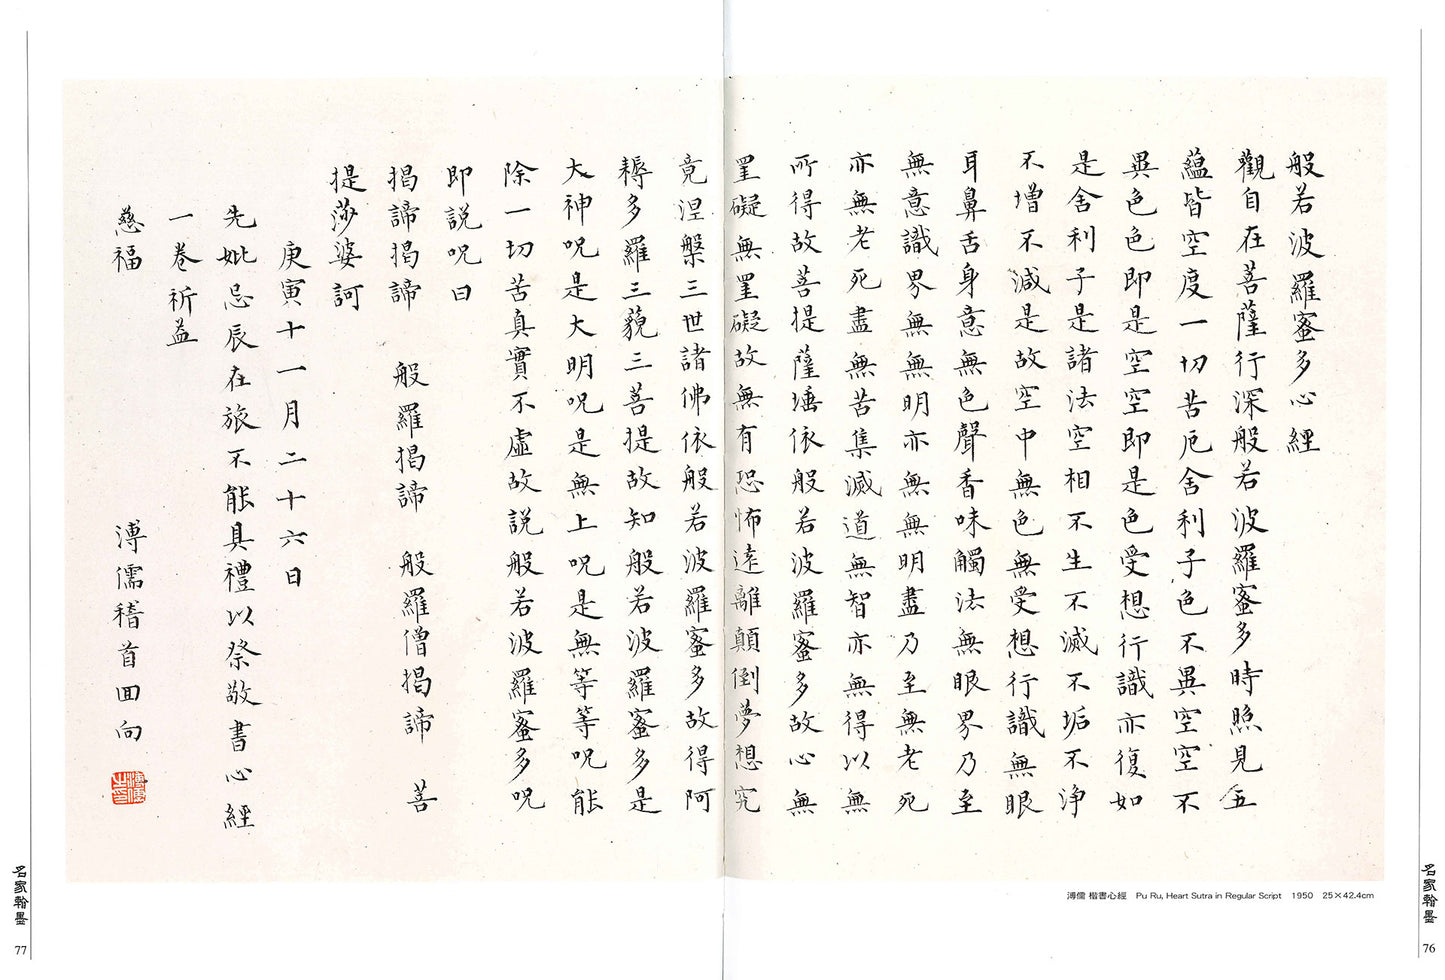 般若波羅蜜多心經
觀自在菩薩行深般若波羅蜜多時照見五
蘊皆空度一切苦厄舍利子色不異空空不
異色色即是空空即是色受想行識亦復如
是舍利子是諸法空相不生不滅不垢不淨
不增不減是故空中無色無受想行識無眼
耳鼻舌身意無色聲香味觸法無眼界乃至
無意識界無無明亦無無明盡乃至無老死
亦無老死盡無苦集滅道無智亦無得以無
所得故菩提薩埵依般若波羅蜜多故心無
罣礙無罣礙故無有恐怖遠離顛倒夢想究
竟涅槃三世諸佛依般若波羅蜜多故得阿
耨多羅三藐三菩提故知般若波羅蜜多是
大神呪是大明呪是無上呪是無等等呪能
除一切苦真實不虛故說般若波羅蜜多呪
即說呪曰
揭諦揭諦 般羅揭諦 般羅僧揭諦 菩
提莎婆訶
庚寅十一月二十六日
先妣忌辰在旅不能具禮以祭敬書心經
一卷祈益
慈福 溥儒稽首回向
溥儒 楷書心經 Pu Ru, Heart Sutra in Regular Script 1950 25×42.4cm
名家翰墨
76
名家翰墨
77